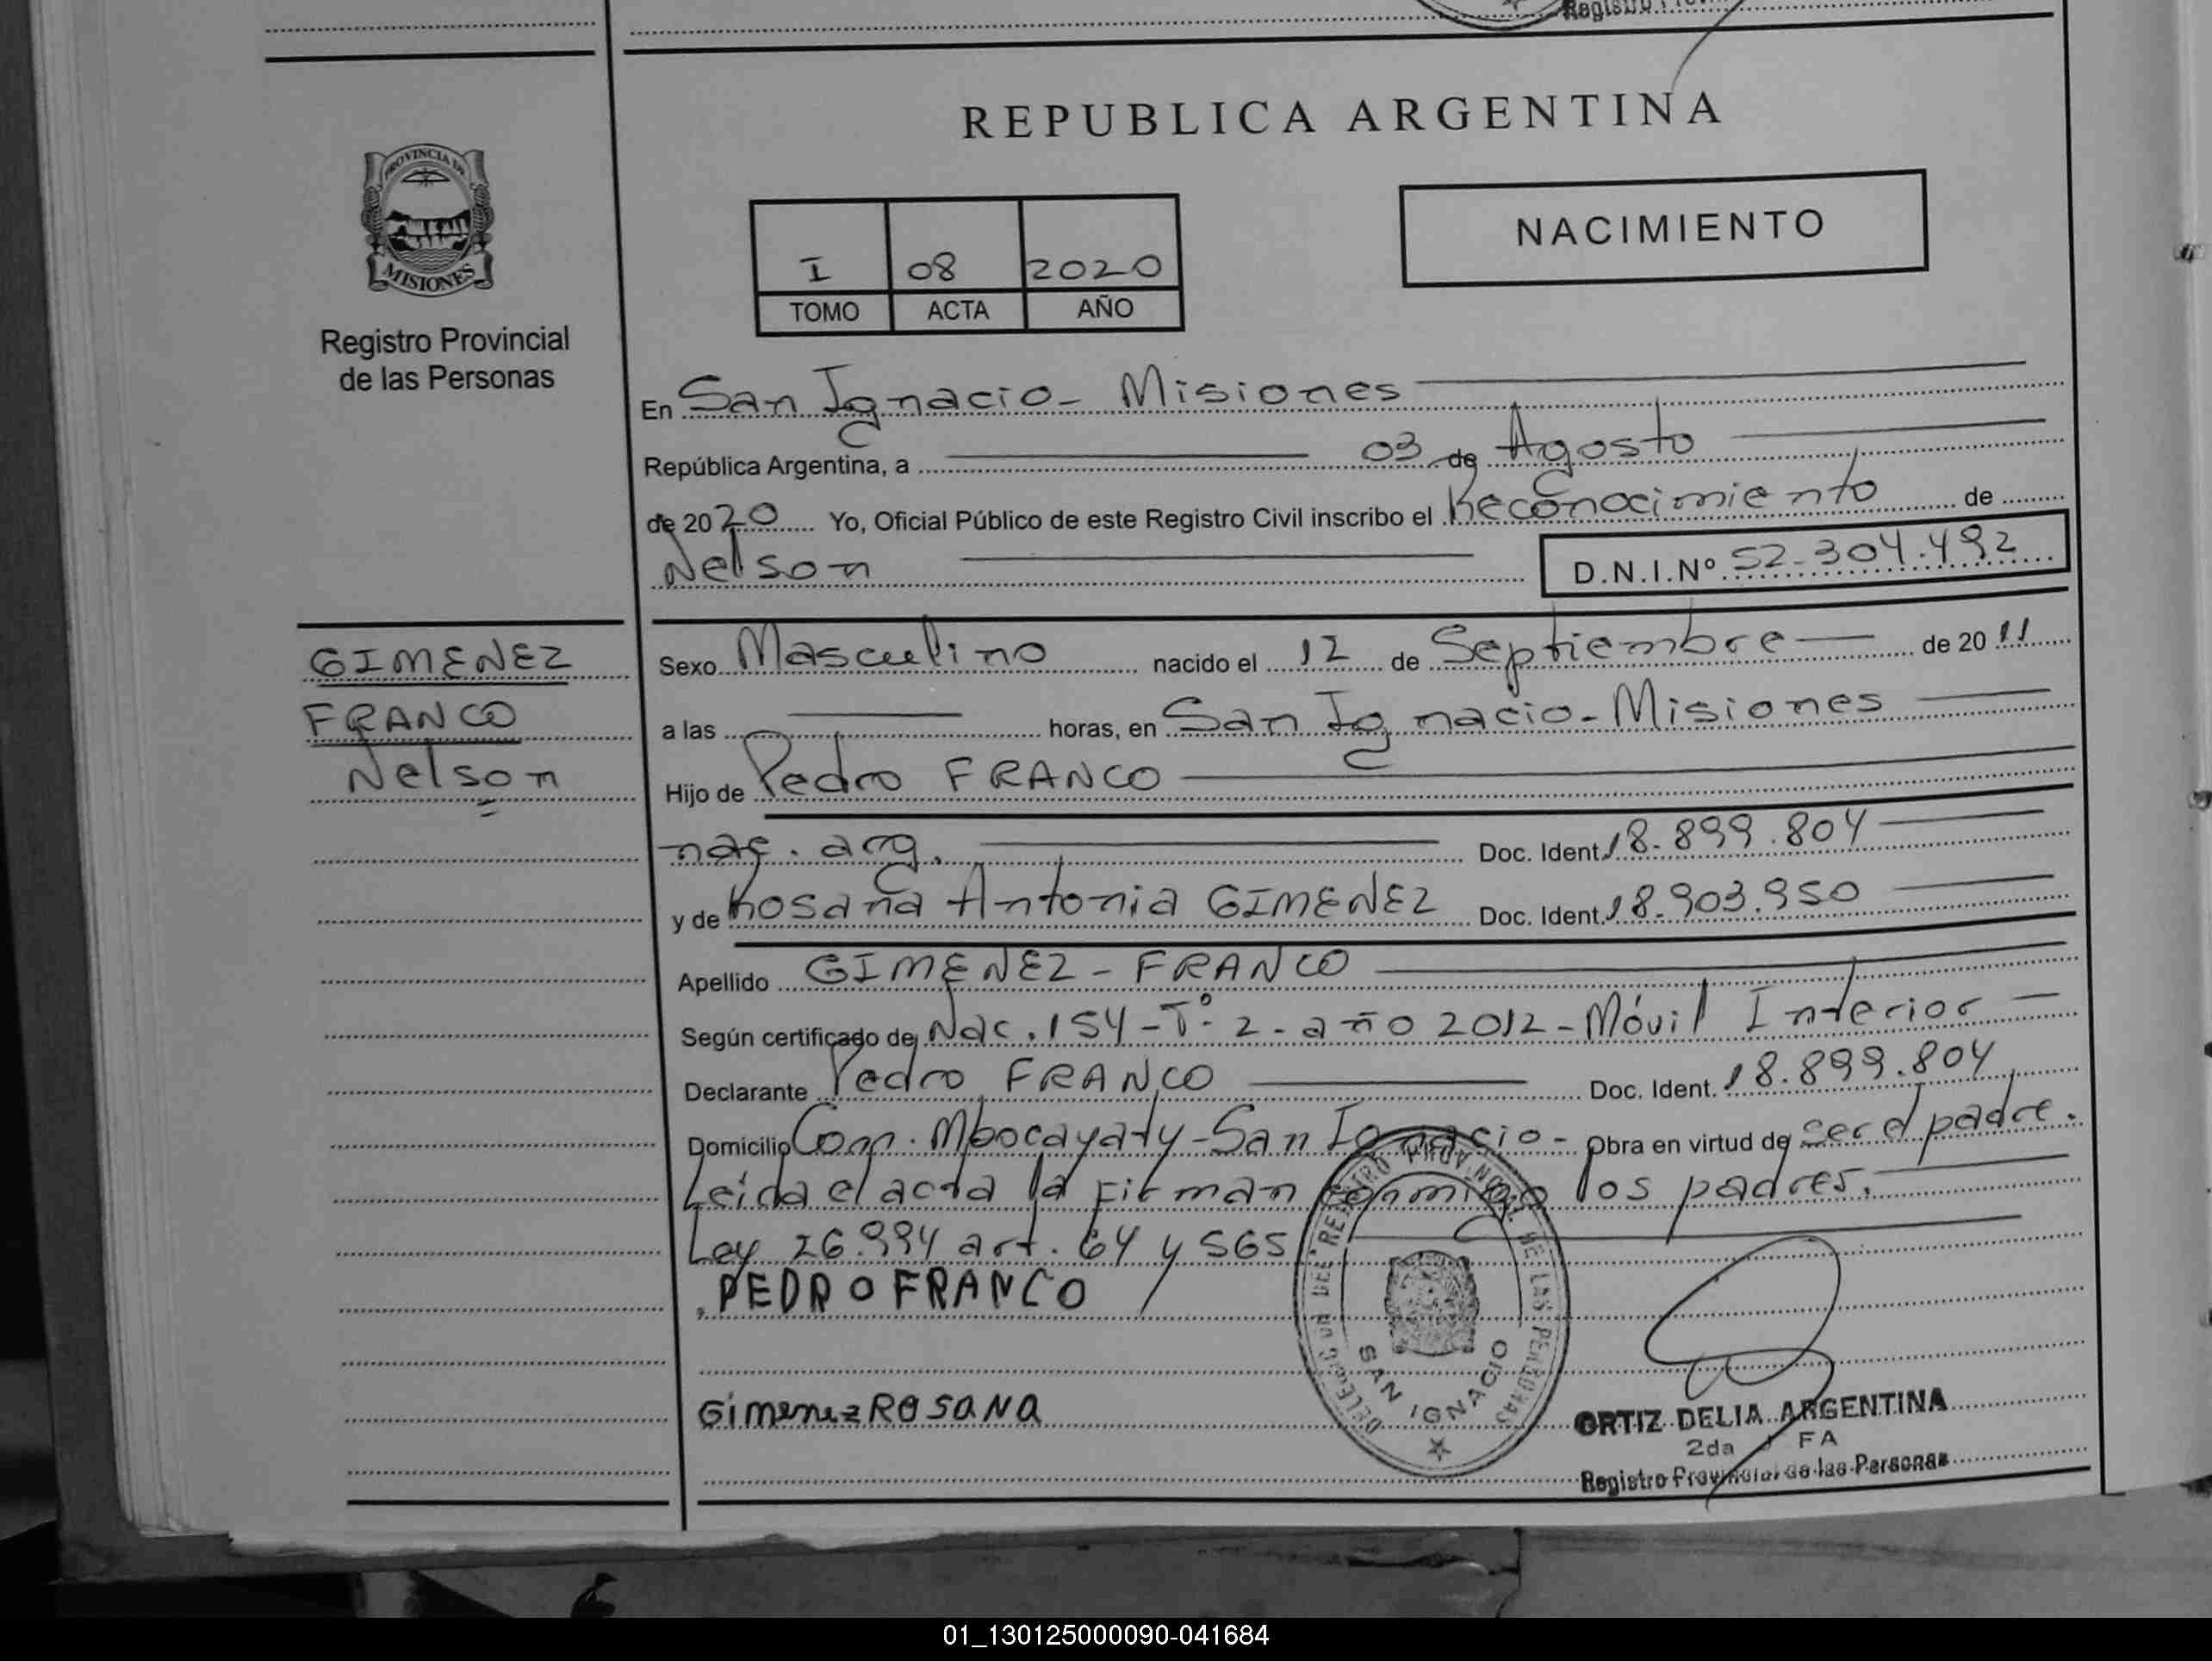 REPUBLICA ARGENTINA
PROVINCIA DE
MISIONES
Registro Provincial
de las Personas
NACIMIENTO
I 08 2020
TOMO ACTA AÑO
En San Ignacio - Misiones
República Argentina, a 03 de Agosto
de 2020 Yo, Oficial Público de este Registro Civil inscribo el Reconocimiento de
Nelson D.N.I.Nº 52.304.492
GIMENEZ
FRANCO
Nelson
Sexo Masculino nacido el 12 de Septiembre de 2011
a las horas, en San Ignacio - Misiones
Hijo de Pedro FRANCO
nac. arg. Doc. Ident. 18.899.804
y de Rosana Antonia GIMENEZ Doc. Ident. 18.903.950
Apellido GIMENEZ - FRANCO
Según certificado de Nac. 154 - Tº 2 - año 2012 - Móvil Interior
Declarante Pedro FRANCO Doc. Ident. 18.899.804
Domicilio Com. Mbocayaty - San Ignacio - Obra en virtud de ser el padre.
Leída el acta la firman conmigo los padres.
Ley 26.994 art. 64 y 565
PEDRO FRANCO
SAN IGNACIO
Gimenez ROSANA
ORTIZ DELIA ARGENTINA
2da FA
Registro Provincial de las Personas
01_130125000090-041684